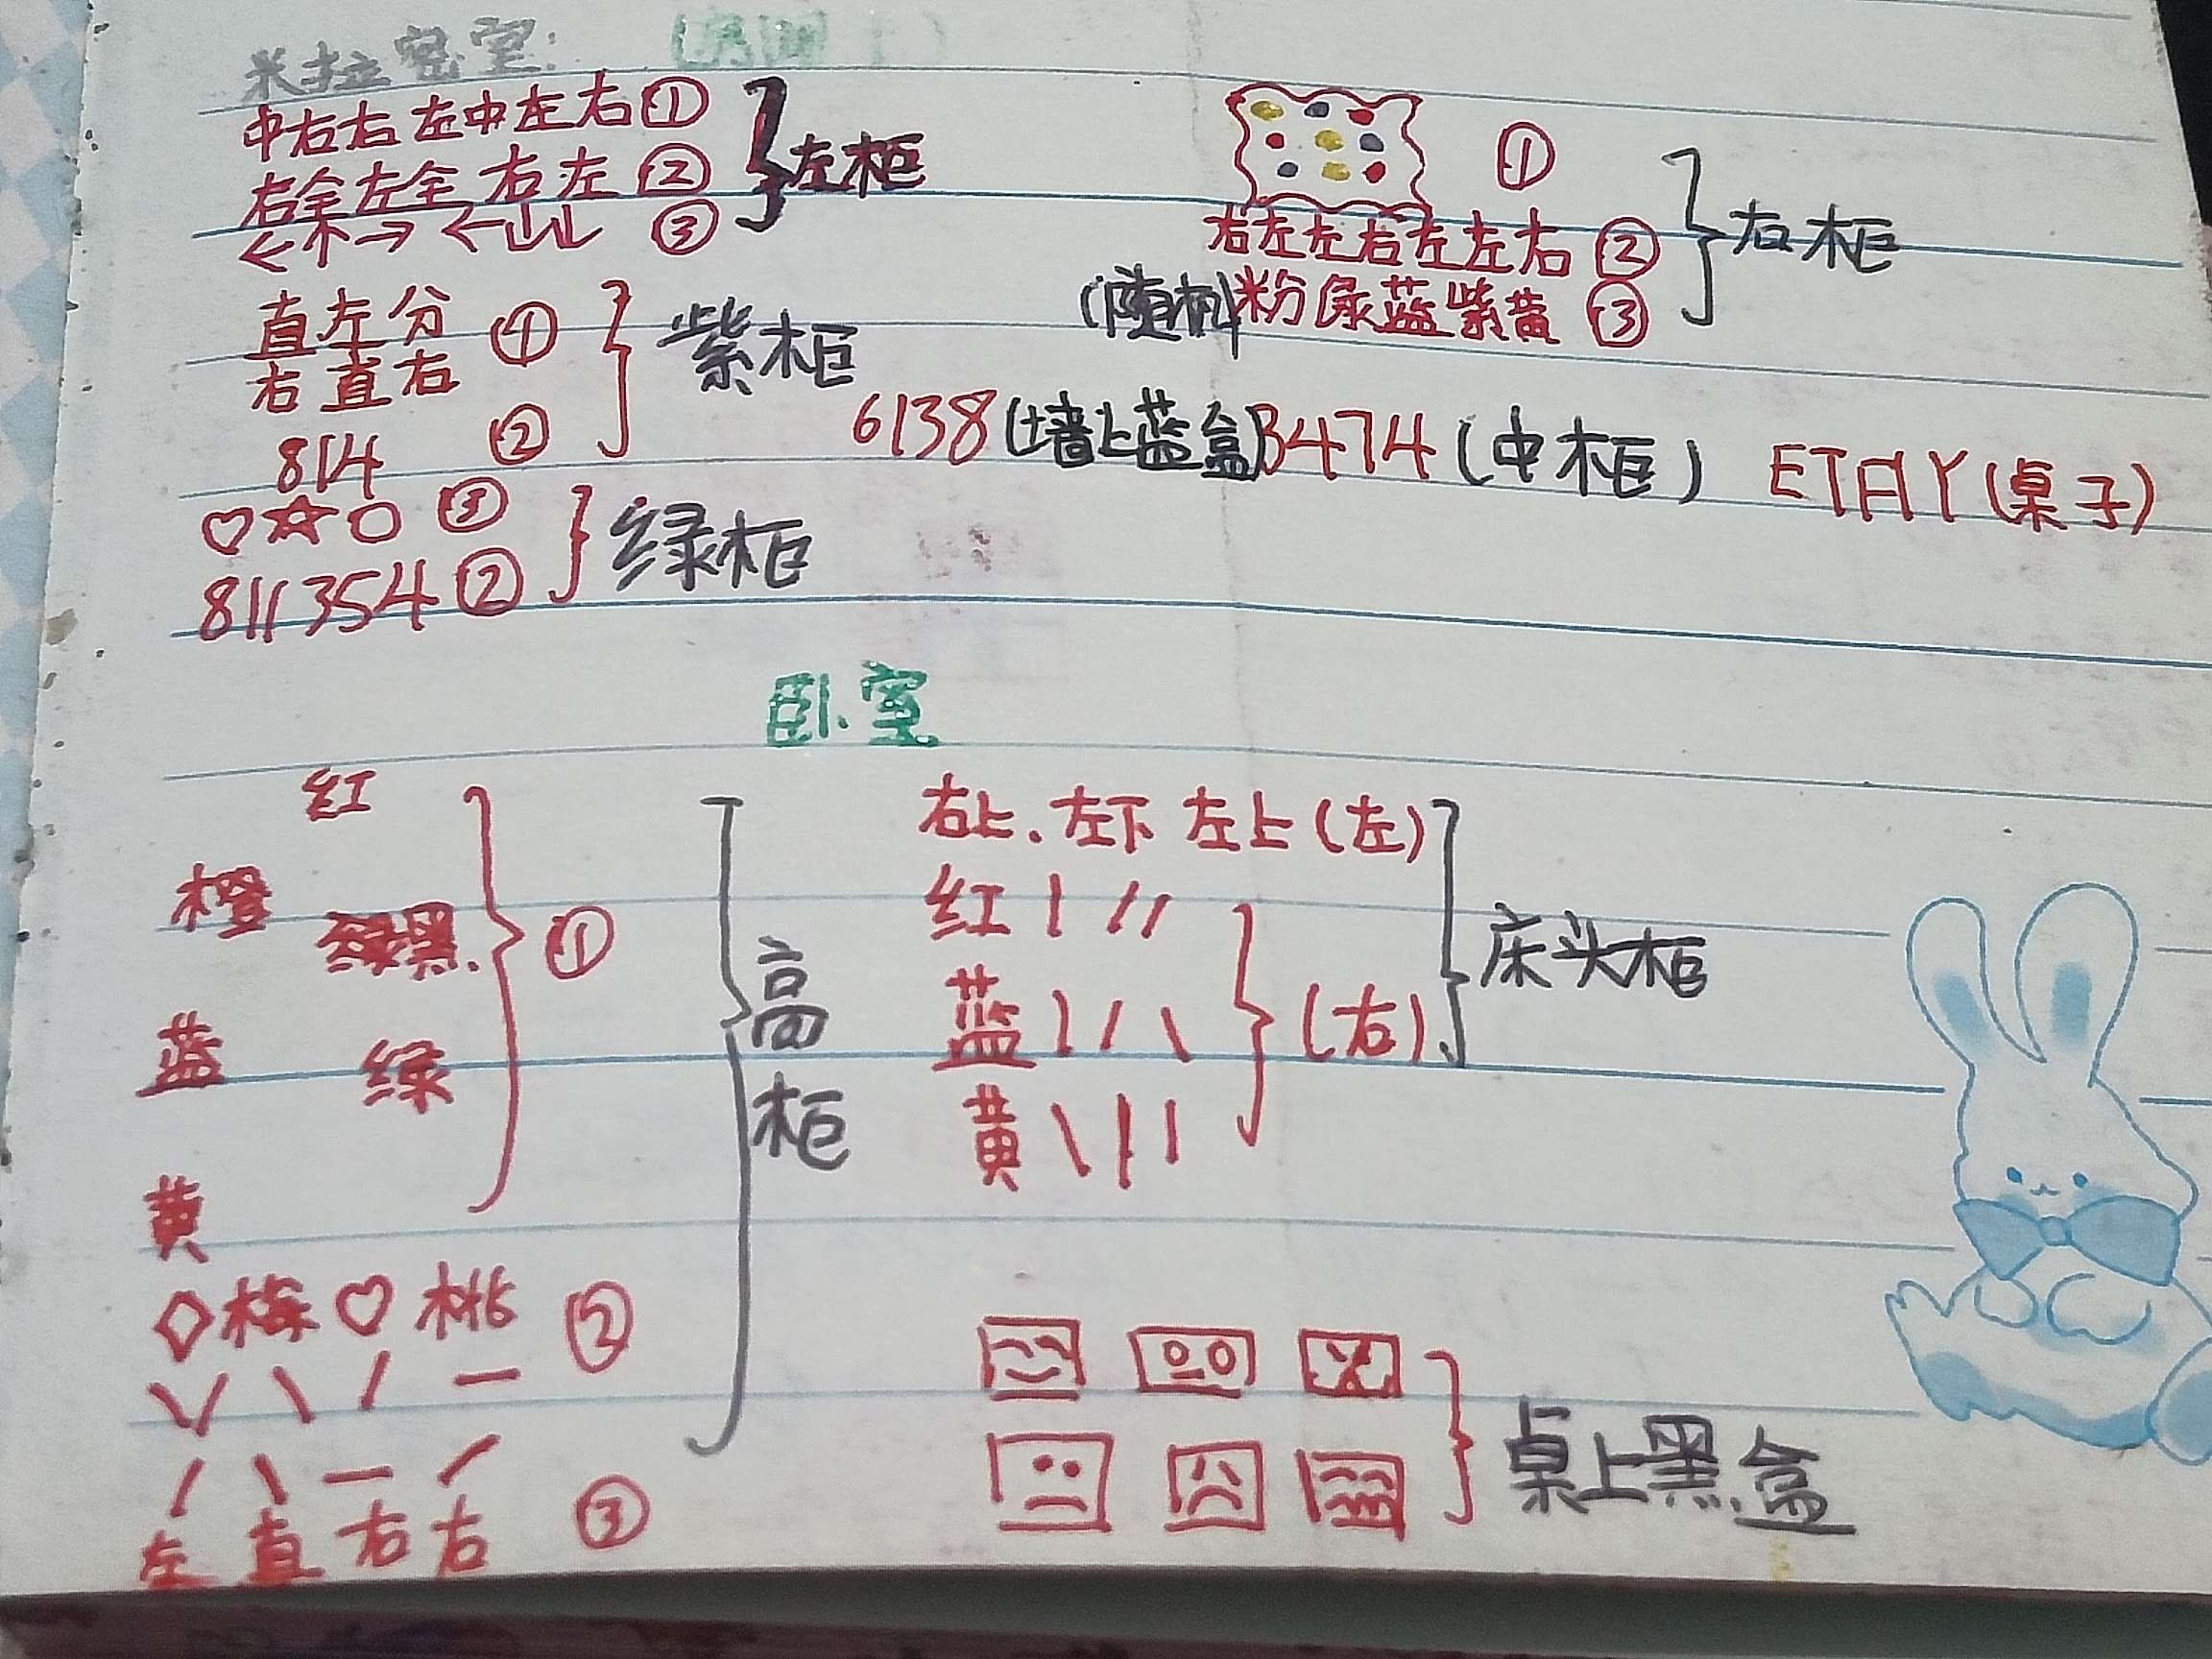 米拉密室:
中右右左中左右①
右全左全右左②
←↑→ ←↓↓ ③
左柜
①
右左左右左左右②
(随机)粉绿蓝紫黄③
右柜
直左分
右直右
①
814 ②
紫柜
6138(墙上蓝盒)
3474(中柜)
ETAY(桌子)
♡☆○ ③
811354②
绿柜
卧室
红
橙 黑
蓝 绿
黄
①
◇梅♡桃 ②
\/ \ / —
/ \ — /
左直右右 ③
高柜
右上.左下 左上(左)
红 | / /
蓝 \ / \
黄 \ | |
(右)
床头柜
桌上黑盒